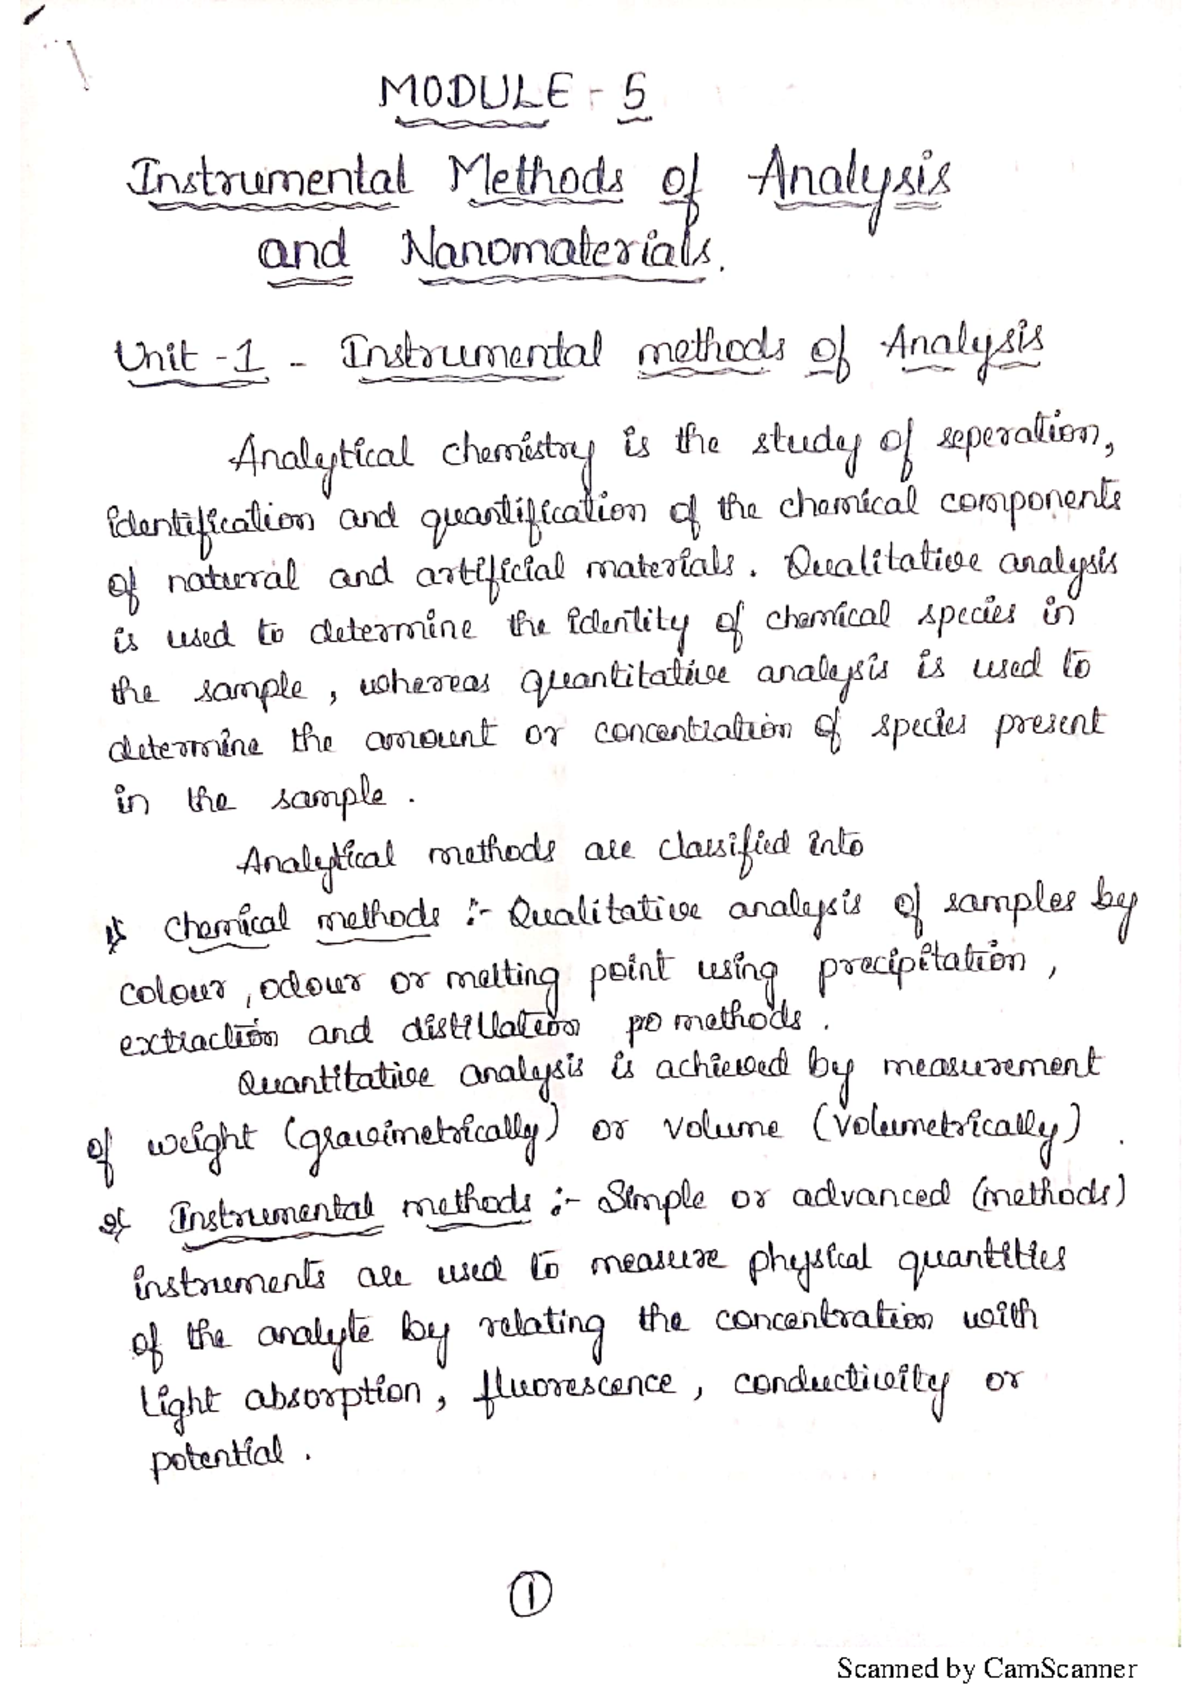 MODULE - 5
Instrumental Methods of Analysis
and Nanomaterials.
Unit -1 - Instrumental methods of Analysis
Analytical chemistry is the study of seperation,
identification and quantification of the chemical components
of natural and artificial materials. Qualitative analysis
is used to determine the identity of chemical species in
the sample, whereas quantitative analysis is used to
determine the amount or concentration of species present
in the sample.
Analytical methods are classified into
1) Chemical methods :- Qualitative analysis of samples by
colour, odour or melting point using precipitation,
extraction and distillation po methods.
Quantitative analysis is achieved by measurement
of weight (gravimetrically) or volume (volumetrically).
2) Instrumental methods :- Simple or advanced (methods)
instruments are used to measure physical quantities
of the analyte by relating the concentration with
light absorption, fluorescence, conductivity or
potential.
1
Scanned by CamScanner